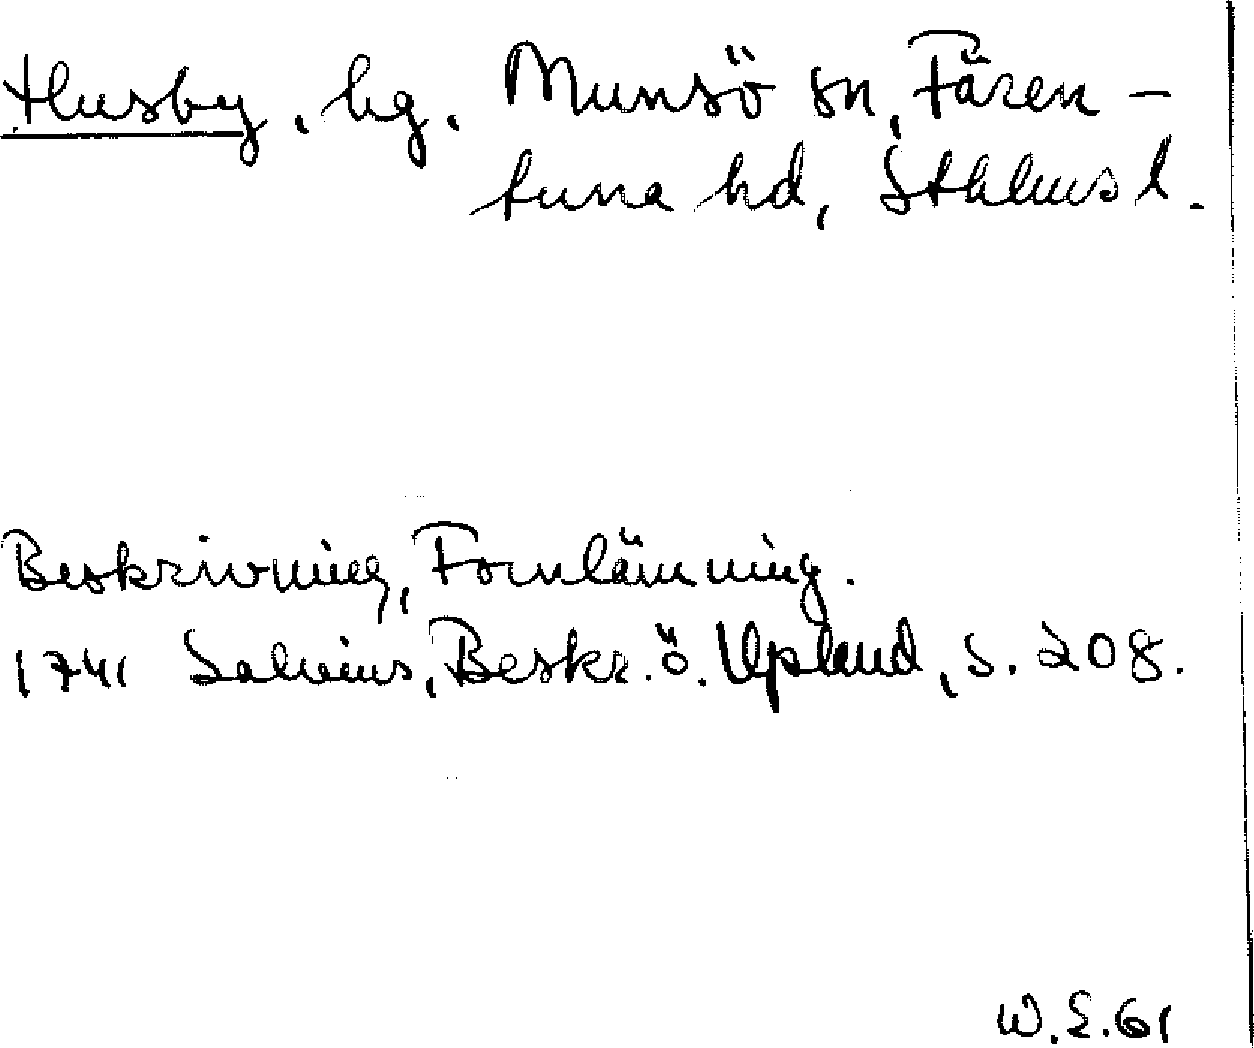 Husby, hg. Munsö sn, Fären-
tuna hd, Sthlms l.
Beskrivning, Fornlämning.
1741 Salvius, Beskr. ö. Upland, s. 208.
W.E. 61